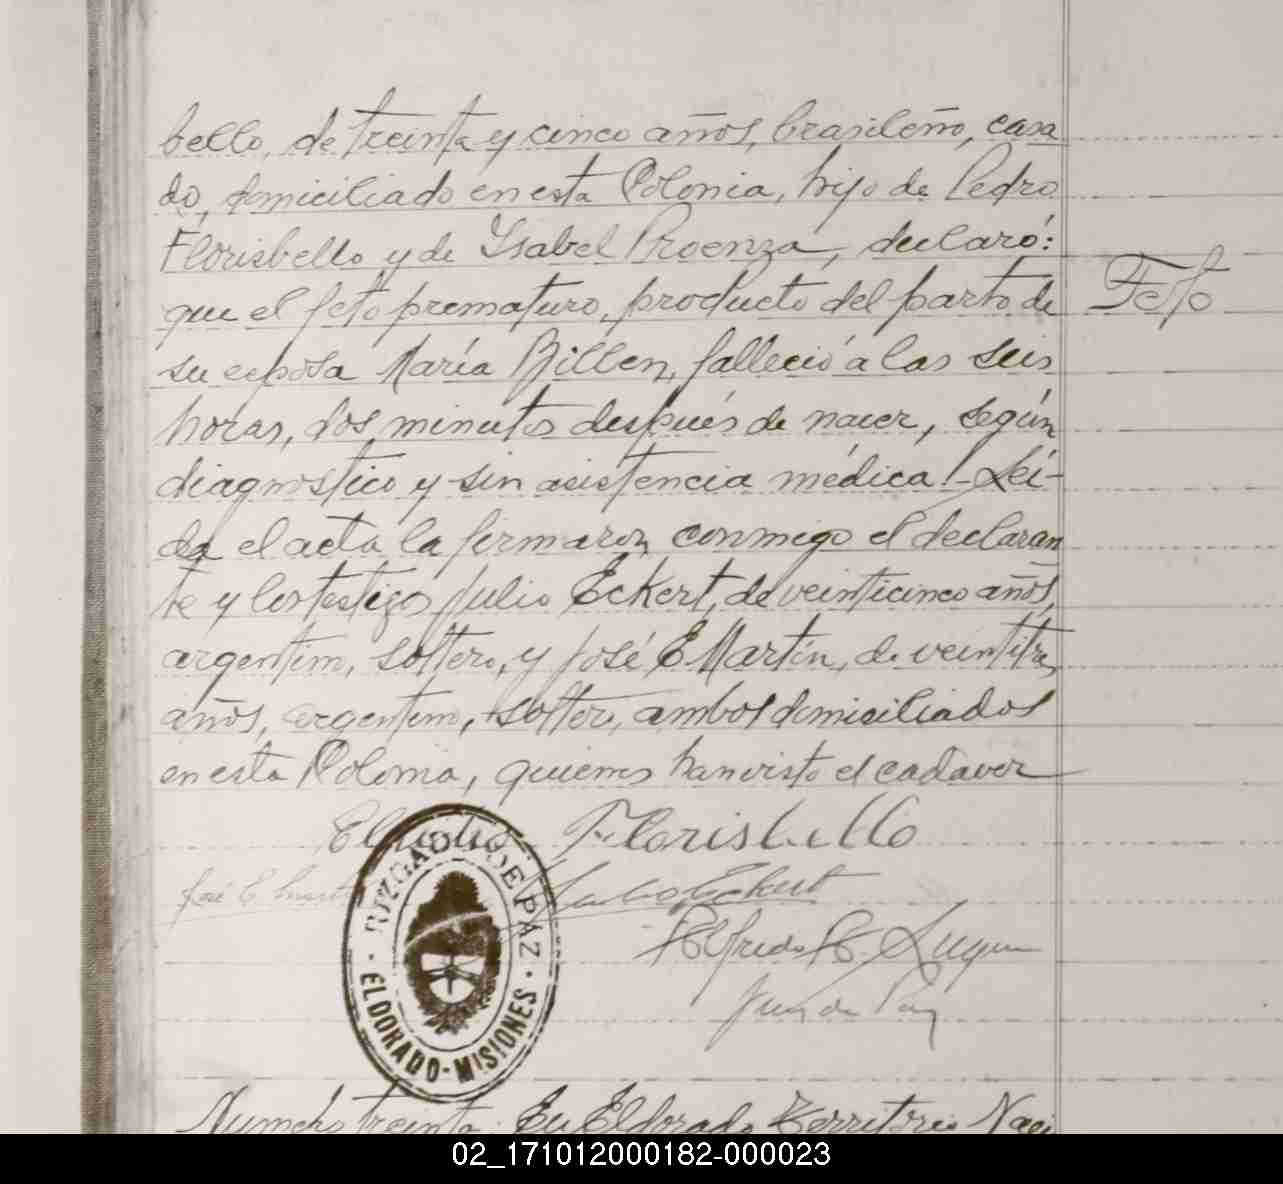 bello, de treinta y cinco años, brasileño, casa
do, domiciliado en esta Colonia, hijo de Pedro
Florisbello y de Ysabel Proenza, declaró:
que el feto prematuro, producto del parto de
Feto
su esposa María Billen, falleció a las seis
horas, dos minutos después de nacer, según
diagnostico y sin asistencia médica!- Leí-
da el acta la firmaron conmigo el declaran
te y los testigos Julio Eckert, de veinticinco años,
argentino, soltero, y José E Martin, de veintitres
años, argentino, soltero, ambos domiciliados
en esta Colonia, quienes han visto el cadaver
Florisbello
José E Martin
Julio Eckert
Alfredo A. Luque
Juez de Paz
JUZGADO DE PAZ
ELDORADO - MISIONES
Numero treinta: En Eldorado Territorio Naci
02_171012000182-000023